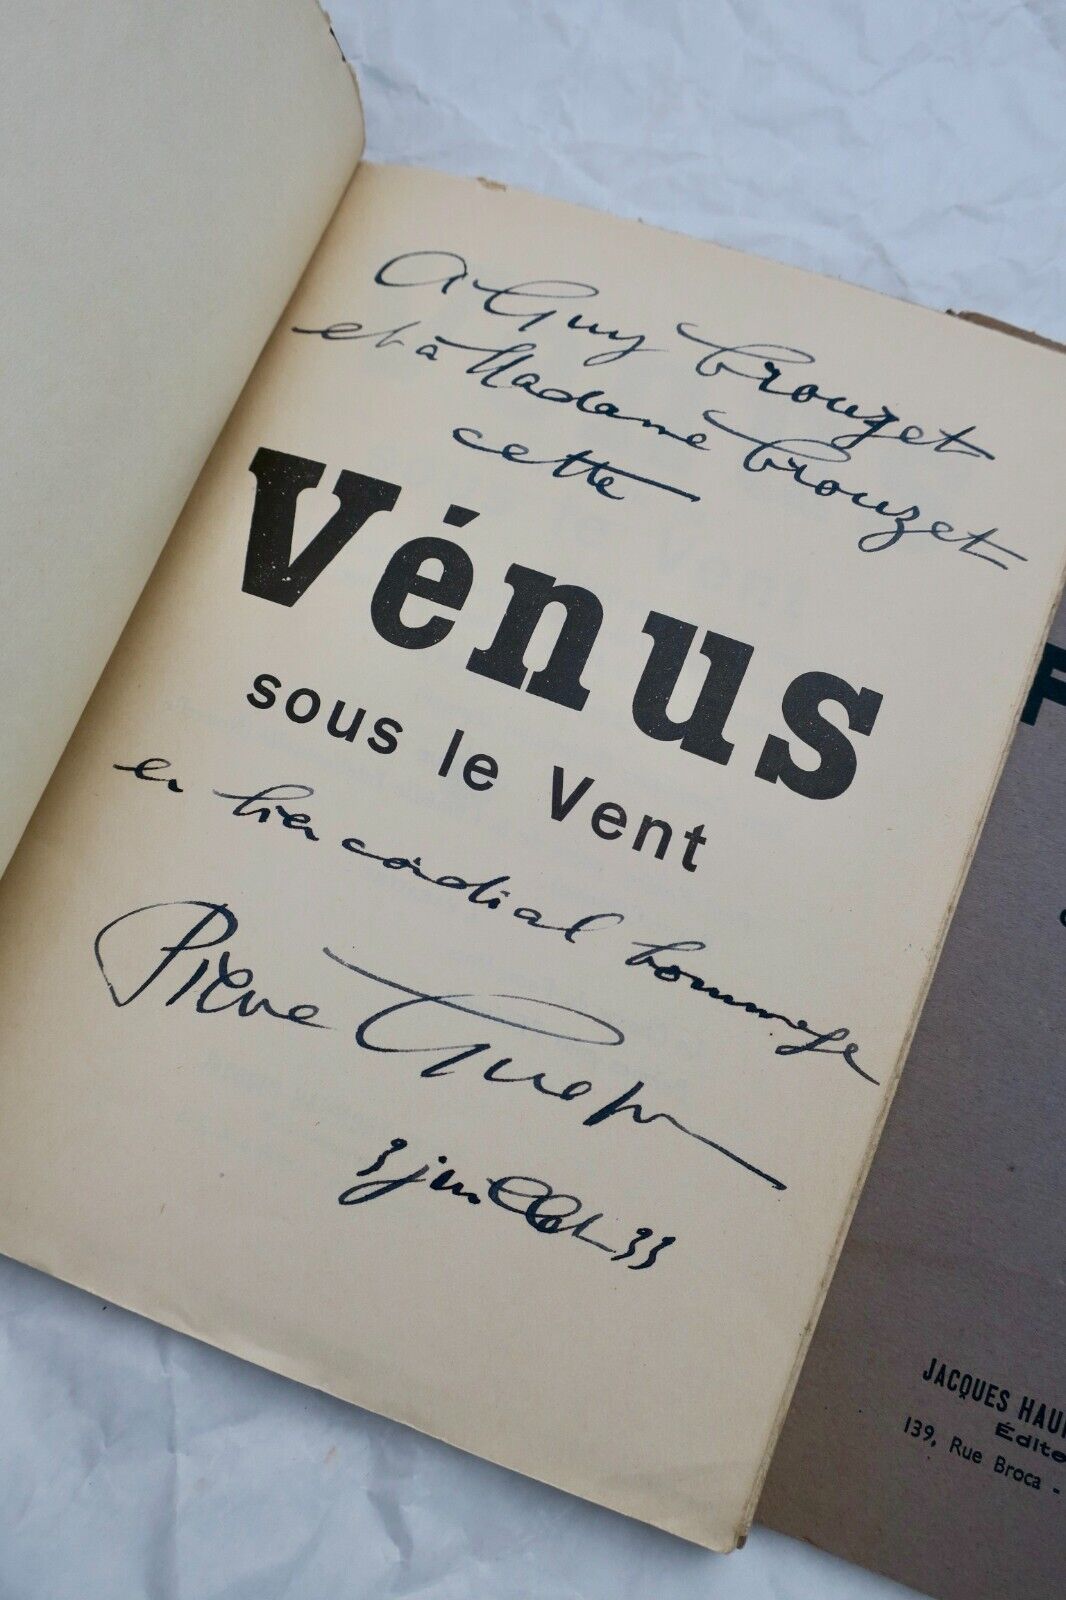 A Guy Crouzet
et à Madame Crouzet
cette
Vénus
sous le Vent
en bien cordial hommage
Pierre
3 juillet 33
JACQUES
139, Rue Broca -